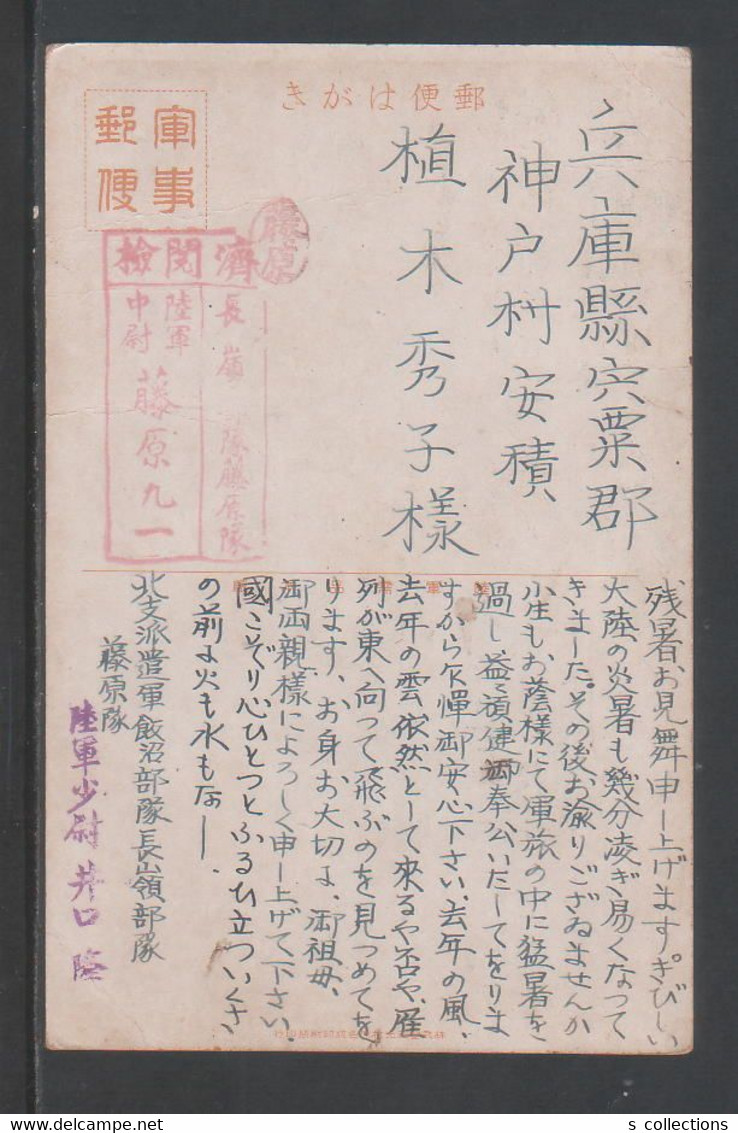 郵便はがき
軍事
郵便
檢閱濟
長嶺部隊藤原隊
陸軍
中尉
藤原九一
藤原
兵庫縣宍粟郡
神戸村安積
植木秀子様
残暑お見舞申し上げます。きびしい
大陸の炎暑も幾分凌ぎ易くなって
きました。その後お渝りございませんか
小生もお蔭様にて軍旅の中に猛暑を
過し益々頑健御奉公いたしてをりま
すから乍憚御安心下さい、去年の風、
去年の雲、依然として來るや否や、雁
列が東へ向って飛ぶのを見つめてを
ります、お身お大切に、御祖母、
御両親様によろしく申し上げて下さい。
國こぞり心ひとつとふるひ立ついくさ
の前に火も水もなし。
北支派遣軍飯沼部隊長嶺部隊
藤原隊
陸軍少尉 井口 隆
s collections